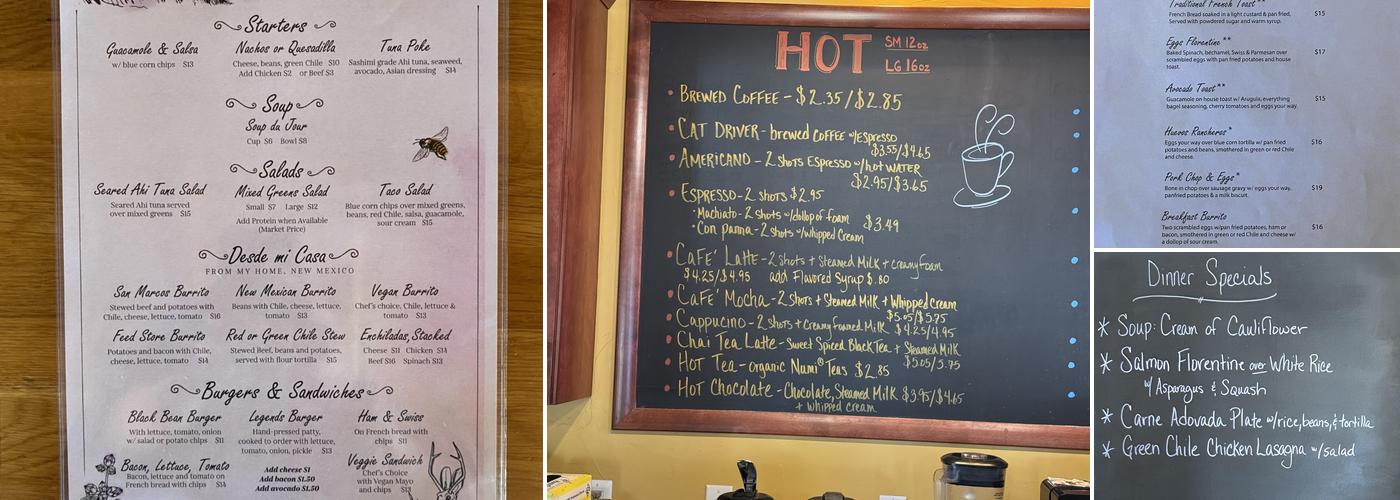 Starters
Guacamole & Salsa
w/ blue corn chips $13
Nachos or Quesadilla
Cheese, beans, green Chile $10
Add Chicken $2 or Beef $3
Tuna Poke
Sashimi grade Ahi tuna, seaweed,
avocado, Asian dressing $14
Soup
Soup du Jour
Cup $6 Bowl $8
Salads
Seared Ahi Tuna Salad
Seared Ahi tuna served
over mixed greens $15
Mixed Greens Salad
Small $7 Large $12
Add Protein when Available
(Market Price)
Taco Salad
Blue corn chips over mixed greens,
beans, red Chile, salsa, guacamole,
sour cream $15
Desde mi Casa
FROM MY HOME, NEW MEXICO
San Marcos Burrito
Stewed beef and potatoes with
Chile, cheese, lettuce, tomato $16
New Mexican Burrito
Beans with Chile, cheese, lettuce,
tomato $13
Vegan Burrito
Chef's choice, Chile, lettuce &
tomato $13
Feed Store Burrito
Potatoes and bacon with Chile,
cheese, lettuce, tomato $14
Red or Green Chile Stew
Stewed Beef, beans and potatoes,
served with flour tortilla $15
Enchiladas, Stacked
Cheese $11 Chicken $14
Beef $16 Spinach $13
Burgers & Sandwiches
Black Bean Burger
With lettuce, tomato, onion
w/ salad or potato chips $11
Legends Burger
Hand-pressed patty,
cooked to order with lettuce,
tomato, onion, pickle $13
Ham & Swiss
On French bread with
chips $11
Bacon, Lettuce, Tomato
Bacon, lettuce and tomato on
French bread with chips $14
Add cheese $1
Add bacon $1.50
Add avocado $1.50
Veggie Sandwich
Chef's Choice
with Vegan Mayo
and chips $13
HOT
SM 12oz
LG 16oz
• BREWED COFFEE - $2.35/$2.85
• CAT DRIVER - brewed COFFEE w/Espresso
$3.55/$4.65
• AMERICANO - 2 SHOTS Espresso w/hot WATER
$2.95/$3.65
ESPRESSO - 2 SHOTS $2.95
• Machiato - 2 shots w/dollop of foam $3.49
• Con panna - 2 shots w/whipped Cream
• CAFE' LATTE - 2 shots + Steamed Milk + creamy foam
$4.25/$4.95 add Flavored Syrup $.80
• CAFE' MOCHA - 2 SHOTS + Steamed Milk + Whipped cream
$5.05/$5.75
• Cappucino - 2 shots + Creamy foamed Milk $4.25/4.95
• Chai Tea Latte - Sweet Spiced Black Tea + Steamed Milk
$5.05/5.75
• HOT TEA - organic Numi® Teas $2.85
• HOT CHOCOLATE - Chocolate, Steamed Milk $3.95/$4.65
+ Whipped cream
Traditional French Toast**
French Bread soaked in a light custard & pan fried, $15
Served with powdered sugar and warm syrup.
Eggs Florentine**
Baked Spinach, béchamel, Swiss & Parmesan over $17
scrambled eggs with pan fried potatoes and house
toast.
Avocado Toast**
Guacamole on house toast w/ Arugula, everything $15
bagel seasoning, cherry tomatoes and eggs your way.
Huevos Rancheros*
Eggs your way over blue corn tortilla w/ pan fried $16
potatoes and beans, smothered in green or red Chile
and cheese.
Pork Chop & Eggs*
Bone in chop over sausage gravy w/ eggs your way, $19
panfried potatoes & a milk biscuit.
Breakfast Burrito
Two scrambled eggs w/pan fried potatoes, ham or $16
bacon, smothered in green or red Chile and cheese w/
a dollop of sour cream.
Dinner Specials
* Soup: Cream of Cauliflower
* Salmon Florentine over White Rice
w/ Asparagus & Squash
* Carne Adovada Plate w/rice, beans, & tortilla
* Green Chile Chicken Lasagna w/salad